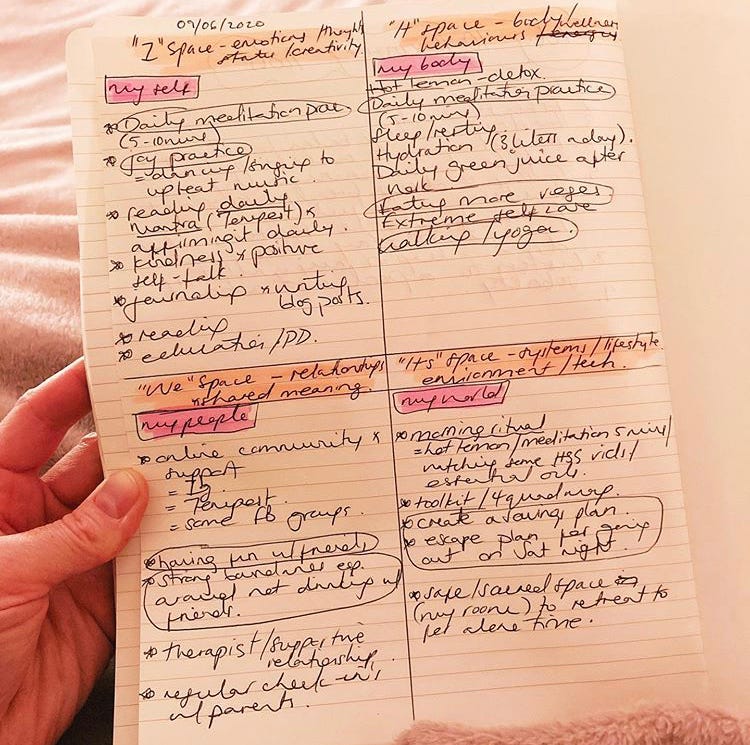 09/06/2020
"I" Space - emotions/thoughts
states/creativity.
my self
Daily meditation
(5-10mins)
Joy practice
= dancing/singing to
upbeat music.
reading daily
mantra (Tempest) *
affirming it daily.
kindness * positive
self-talk.
journaling * writing
blog posts.
reading
education/PD.
"It" space - body/wellness
behaviours/energy
my body
Hot lemon - detox.
Daily meditation practice
(5-10mins)
Sleep/resting
Hydration (3 liters a day).
Daily green juice after
work
Eating more vegies
Extreme self care
walking/yoga.
"We" Space - relationships
shared meaning.
my people
online community *
support
= Ig
= Tempest.
= some FB groups.
having fun w/friends
strong boundaries esp.
around not drinking w/
friends.
therapist/supportive
relationship.
regular check-in's
w/parents.
"Its" space - systems/lifestyle
environment/tech.
my world
morning ritual
= hot lemon/meditation 5 mins/
watching some HSS vids/
essential oils.
toolkit/4 quad map.
create a savings plan.
escape plan for going
out on sat night.
safe/sacred space
(my room) to retreat to
for alone time.